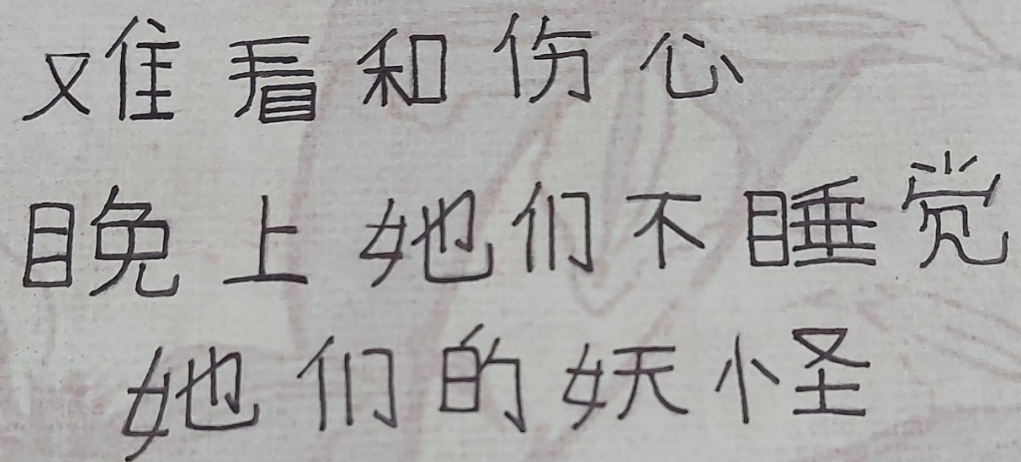 难看和伤心
晚上她们不睡觉
她们的妖怪